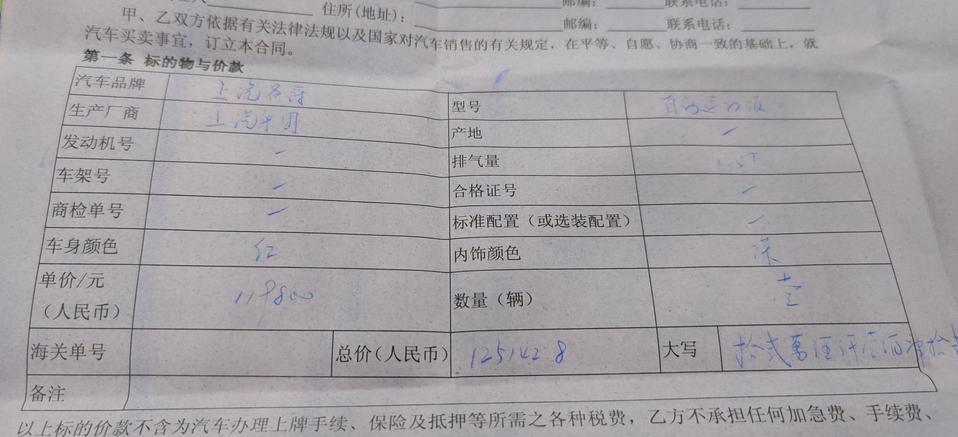 住所(地址)： 邮编： 联系电话：
邮编： 联系电话：
甲、乙双方依据有关法律法规以及国家对汽车销售的有关规定，在平等、自愿、协商一致的基础上，就
汽车买卖事宜，订立本合同。
第一条 标的物与价款
汽车品牌 上汽名爵 型号
生产厂商 上汽集团 产地 一
发动机号 一 排气量 1.5T
车架号 一 合格证号 一
商检单号 一 标准配置（或选装配置） 一
车身颜色 红 内饰颜色
单价/元
（人民币） 119800 数量（辆） 壹
海关单号 总价(人民币) 125142.8 大写
备注
以上标的价款不含为汽车办理上牌手续、保险及抵押等所需之各种税费，乙方不承担任何加急费、手续费、